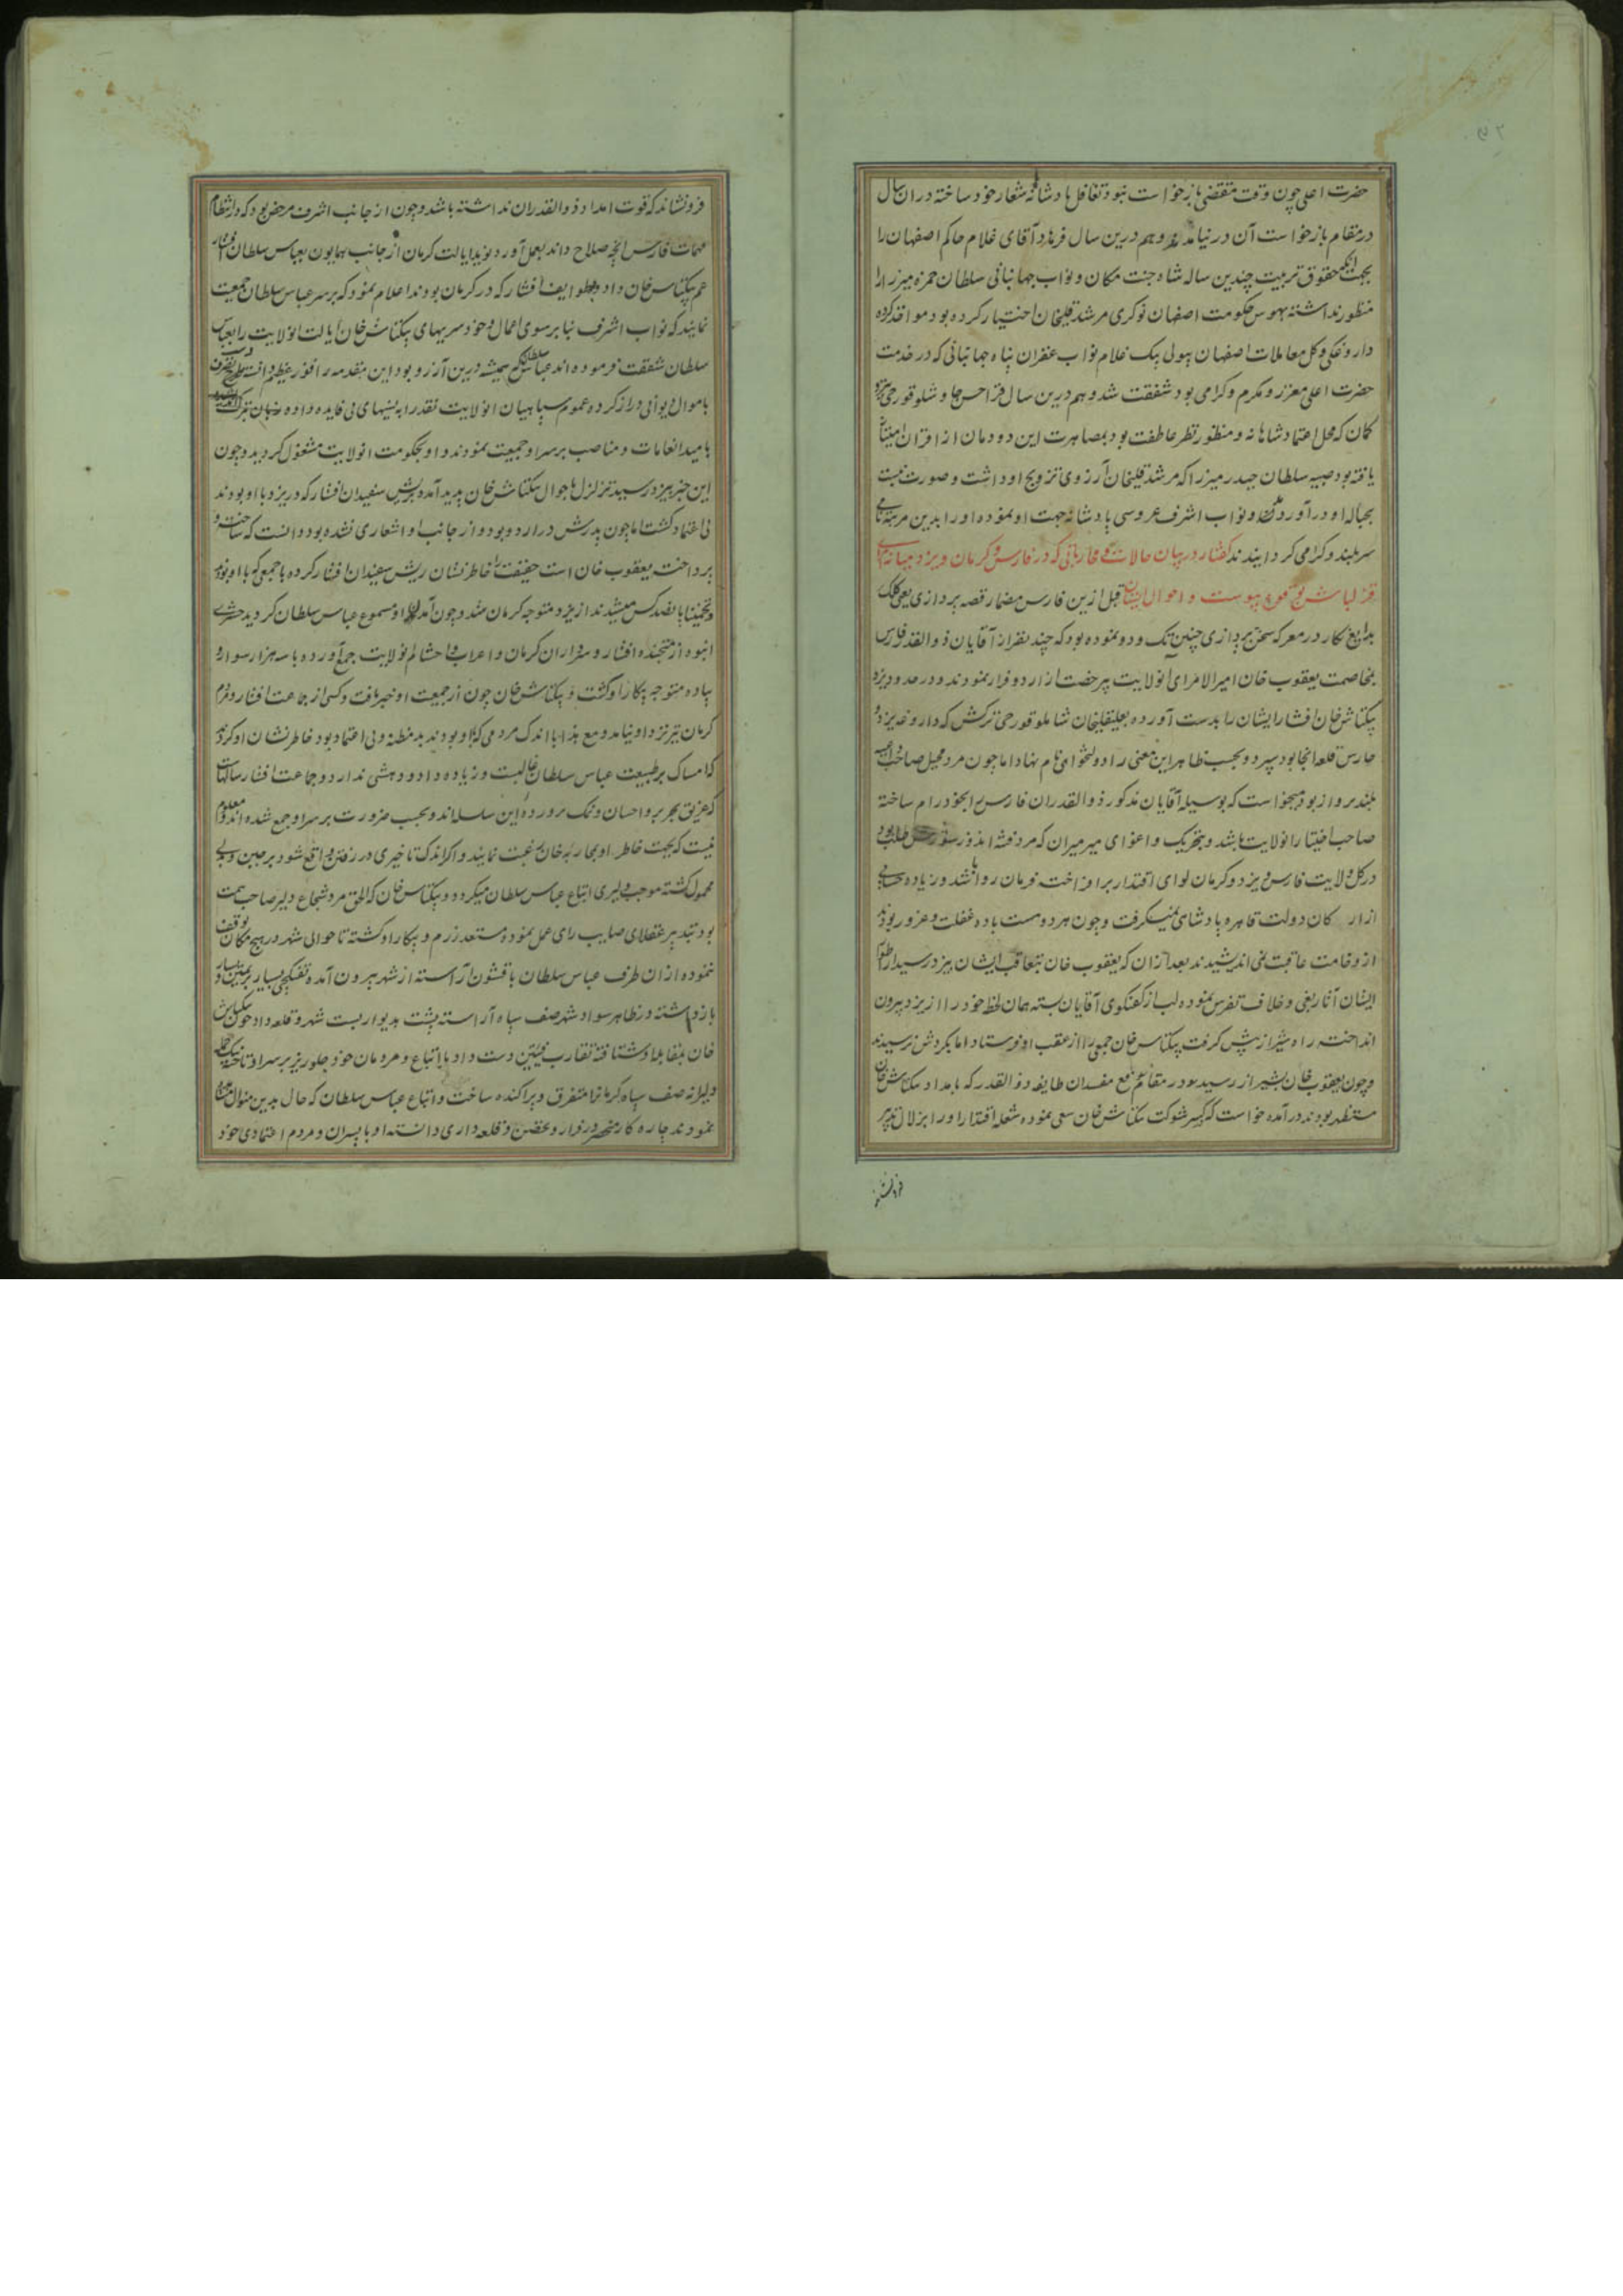 حضرت اعلی چون وقت مقتضی بازخواست نبود تغافل پادشانه شعار خود ساخته در ان سال
در مقام بازخواست آن در نیامدند و هم درین سال فرهاد آقای غلام حاکم اصفهان را
بجهت انکه حقوق تربیت چندین ساله شاه جنت مکان و نواب جهانبانی سلطان حمزه میرزا را
منظور نداشته بهوس حکومت اصفهان نوکری مرشد قلیخان اختیار کرده بود مواخذ کرده
داروغکی و کل معاملات اصفهان بیولی بیک غلام نواب غفران پناه جهانبانی که در خدمت
حضرت اعلی معزز و مکرم و کرامی بود شفقت شد و هم درین سال قرا حسن شاملو قورچی تیر و
کمان که محل اعتماد شاهانه و منظور نظر عاطفت بود بمصاهرت این دودمان از اقران امتیاز
یافته بود صبیه سلطان حیدر میرزا که مرشد قلیخان آرزوی تزویج او داشت و صورت نبست
بحباله او در آوردند و نواب اشرف عروسی پادشانه جهت او نموده او را بدین مرتبه نامی
سربلند و کرامی کردانیدند کفتار در بیان حالات و محارباتی که در فارس و کرمان و یزد میانه امرای
قزلباش بوقوع پیوست و احوال ایشان قبل ازین فارس مضمار قصه پردازی یعنی کلک
بدایع نکار در معرکه سخن پردازی چنین تک و دو نموده بود که چند نفر از آقایان ذوالقدر فارس
بمخاصمت یعقوب خان امیرالامرای انولایت بیرخصت از اردو فرار نمودند و در حدود یزد
بیکتاش خان افشار ایشان را بدست آورده بعلیقلیخان شاملو قورچی ترکش که داروغه یزد و
حارس قلعه انجا بود سپرد و بحسب ظاهر این معنی را دولتخواهی نام نهاد اما چون مرد مخیل صاحب داعیه
بلند پرواز بود میخواست که بوسیله آقایان مذکور ذوالقدران فارس را بخود رام ساخته
صاحب اختیار انولایت باشد و بتحریک و اغوای میرمیران که مرد فتنه اندوز شورش طلب بود
در کل ولایت فارس و یزد و کرمان لوای اقتدار برافراخته فرمان روا باشد و زیاده حسابی
از ارکان دولت قاهره پادشاهی نمیگرفت و چون هر دو مست باده غفلت و غرور بودند
از وخامت عاقبت نمی اندیشیدند بعد از آن که یعقوب خان بتعاقب ایشان بیزد رسید از اطوار
ایشان آثار بغی و خلاف تفرس نموده لب از کفتکوی آقایان بسته همان لحظه خود را از یزد بیرون
انداخته راه شیراز پیش کرفت بیکتاش خان جمعی را از عقب او فرستاد اما بکردش نرسیدند
و چون یعقوب خان بشیراز رسید در مقام قمع مفسدان طایفه ذوالقدر که بامداد بیکتاش خان
مستظهر بودند درآمده خواست که کسر شوکت بیکتاش خان سعی نموده شعله اقتدار او را بزلال تدبیر
فرونشاند
فرونشاند که قوت امداد ذوالقدران نداشته باشد و چون از جانب اشرف مرخص بود که در انتظام
مهمات فارس انچه صلاح داند بعمل آورد نوید ایالت کرمان از جانب همایون بعباس سلطان افشار
عم بیکتاش خان داد و بطوایف افشار که در کرمان بودند اعلام نمود که بر سر عباس سلطان جمعیت
نمایند که نواب اشرف بنا بر سوی اعمال و خودسریهای بیکتاش خان ایالت انولایت را بعباس
سلطان شفقت فرموده اند عباس سلطان که همیشه درین آرزو بود این مقدمه را فوز عظیم دانسته
باموال یوانی دراز کرده عموم سپاهیان انولایت نقد را به نسیهای بی فایده داده
بامید انعامات و مناصب بر سر او جمعیت نمودند و او بحکومت انولایت مشغول کردید و چون
این خبر بیزد رسید تزلزل باحوال بیکتاش خان پدید آمده بریش سفیدان افشار که در یزد با او بودند
بی اعتماد کشت اما چون پدرش در اردو بود و از جانب او اشعاری نشده بود دانست که ساخته و
پرداخته یعقوب خان است حقیقت را خاطرنشان ریش سفیدان افشار کرده با جمعی که با او بودند
و تخمینا پانصد کس میشدند از یزد متوجه کرمان شد و چون آمدن او مسموع عباس سلطان کردید حشری
انبوه از منجنده افشار و سرداران کرمان و اعراب و احشام انولایت جمع آورده با سه هزار سوار و
پیاده متوجه پیکار او کشت و بیکتاش خان چون از جمعیت او خبر یافت و کسی از جماعت افشار و مردم
کرمان نیز نزد او نیامد و مع هذا با اندک مردمی که با او بودند بد مظنه و بی اعتماد بود خاطرنشان او کردند
که امساک بر طبیعت عباس سلطان غالبست و زیاده داد و دهشی ندارد و جماعت افشار سالهاست
که غریق بحر بر و احسان و نمک پرورده این سلسله اند و بحسب ضرورت بر سر او جمع شده اند و معلوم
نیست که بجهت خاطر او بمحاربه خان رغبت نمایند و اکر اندک تاخیری در رفتن واقع شود بر جبن و بددلی
محمول کشته موجب دلیری اتباع عباس سلطان میکردد و بیکتاش خان که الحق مرد شجاع دلیر صاحب همت
بود بتدبیر عقلای صایب رای عمل نموده مستعد رزم و پیکار او کشته تا حوالی شهر در هیچ مکان توقف
ننموده از ان طرف عباس سلطان با قشون آراسته از شهر بیرون آمده تفنکچی بسیار بر یمین و یسار
بازداشته در ظاهر سواد شهر صف سپاه آراسته پشت بدیوار بست شهر و قلعه داد چون بیکتاش
خان بمقابله او شتافته تقارب فئتین دست داد با اتباع و مردمان خود جلوریز بر سر او تاخته بیک حمله
دلیرانه صف سپاه کرمانرا متفرق و پراکنده ساخت و اتباع عباس سلطان که حال بدین منوال مشاهده
نمودند چاره کار منحصر در فرار و تحصن و قلعه داری دانسته او با پسران و مردم اعتمادی خود